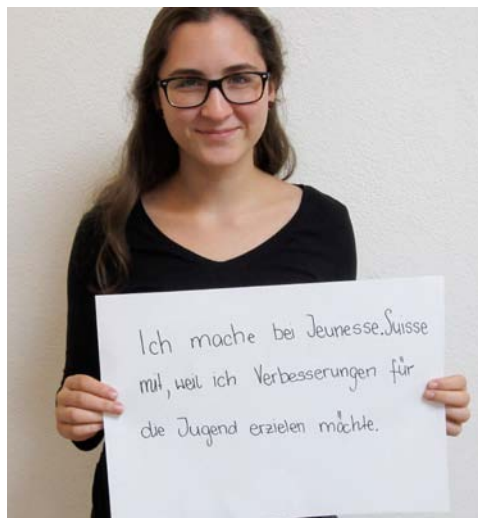 Ich mache bei Jeunesse.Suisse
mit, weil ich Verbesserungen für
die Jugend erzielen möchte.